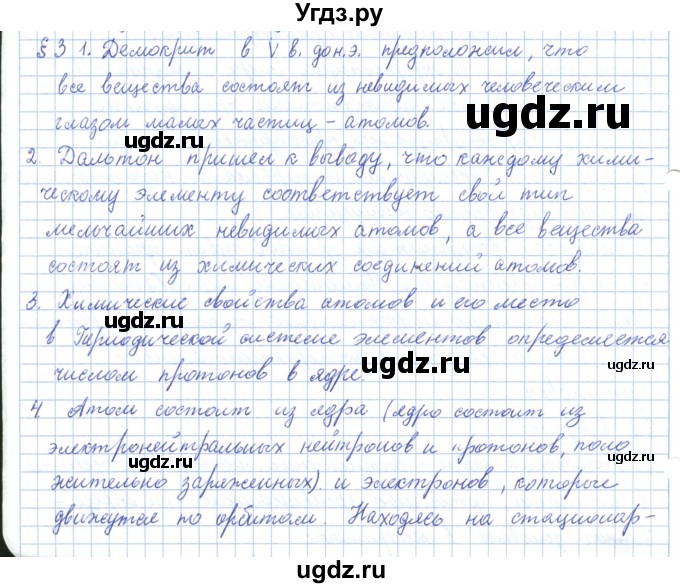 Угдз.ру
§ 3 1. Демокрит в V в. до н.э. предположил, что
все вещества состоят из невидимых человеческим
глазом малых частиц - атомов.
2. Дальтон пришел к вываду, что каждому хими-
ческому элементу соответствует свой тип
мельчайших невидимых атомов, а все вещества
состоят из химических соединений атомов.
3. Химические свойства атомов и его место
в Периодической системе элементов определяется
числом протонов в ядре.
4. Атом состоит из ядра (ядро состоит из
электронейтральных нейтронов и протонов, поло
жительно заряженных) и электронов, которые
движутся по орбитам. Находясь на стационар-
ugdz.ru
ugdz.ru
ugdz.ru
ugdz.ru
ugdz.ru
ugdz.ru
ugdz.ru
ugdz.ru
ugdz.ru
ugdz.ru
ugdz.ru